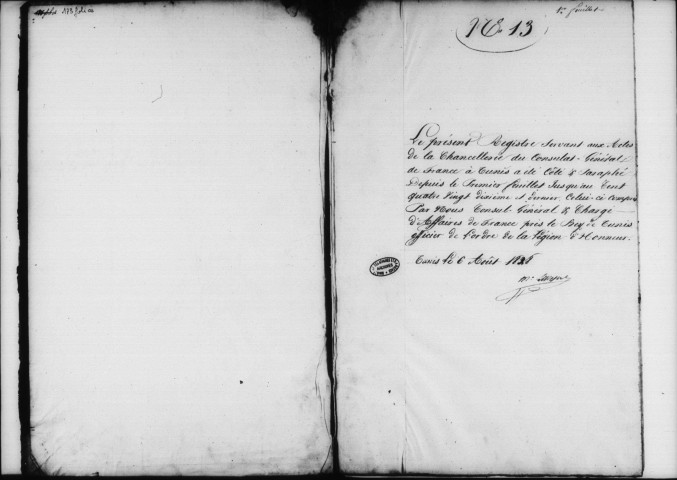 1er feuillet
No 13
Le présent Registre servant aux Actes
de la Chancellerie du Consulat-Général
de France à Tunis a été Côté & Paraphé
Depuis le Premier feuillet Jusqu'au Cent
quatre Vingt dixième et dernier Celui-ci Compris
Par Nous Consul Général & Chargé
d'Affaires de France près le Bey de Tunis
officier de l'ordre de la Légion d'Honneur.
Tunis le 6 Août